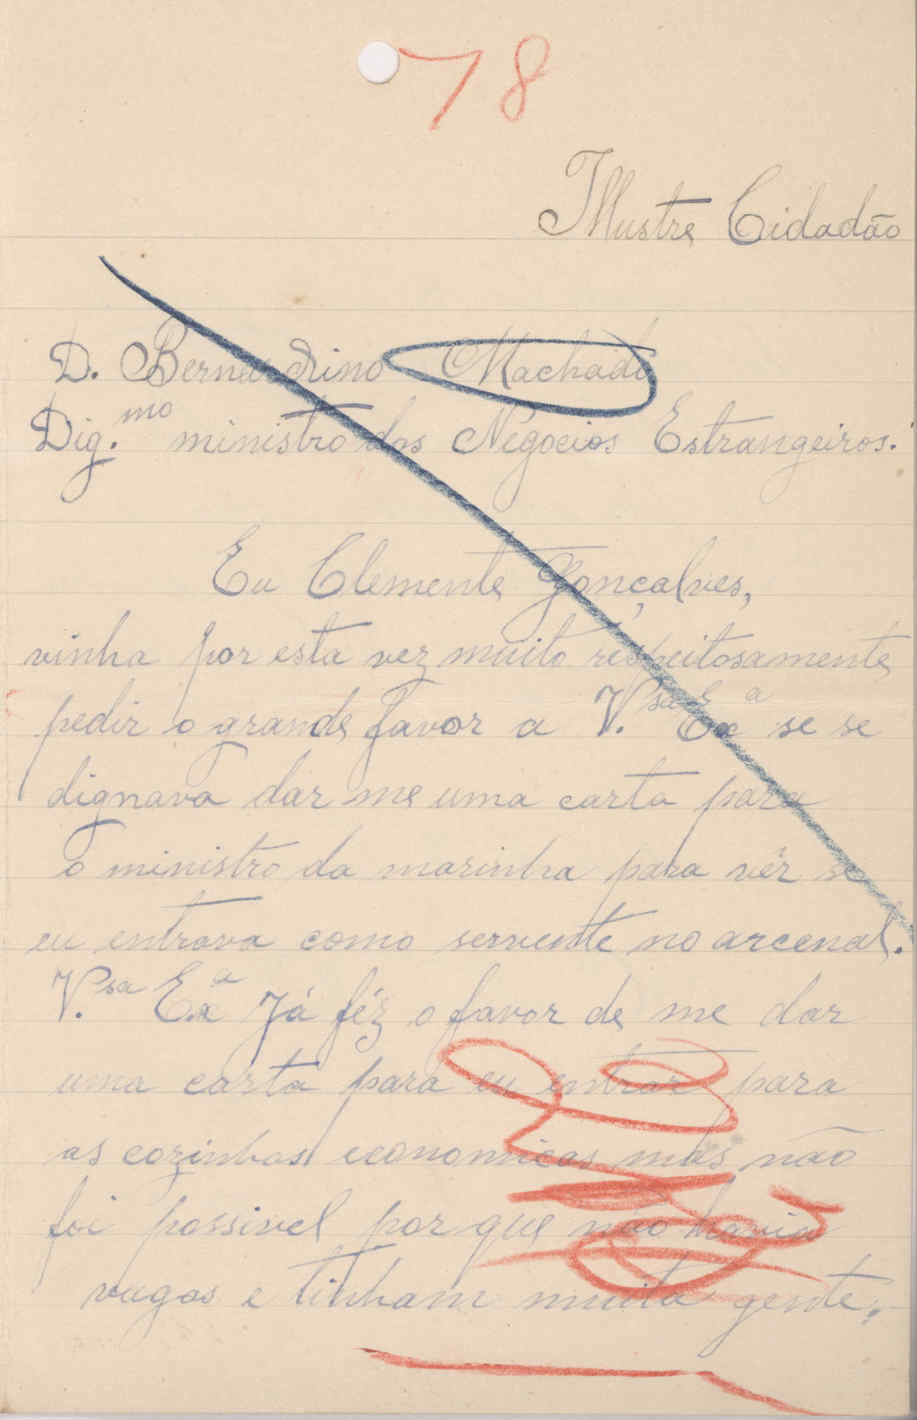 78
Illustre Cidadão
D. Bernardino Machado
Dig.mo ministro dos Negocios Estrangeiros.
Eu Clemente Gonçalves,
vinha por esta vez muito respeitosamente
pedir o grande favor a V.sa Exa se se
dignava dar me uma carta para
o ministro da marinha para vêr se
eu entrava como servente no arcenal.
V.sa E.xa Já féz o favor de me dar
uma carta para eu entrar para
as cozinhas economicas mas não
foi possivel por que não havia
vagas e tinham muita gente,